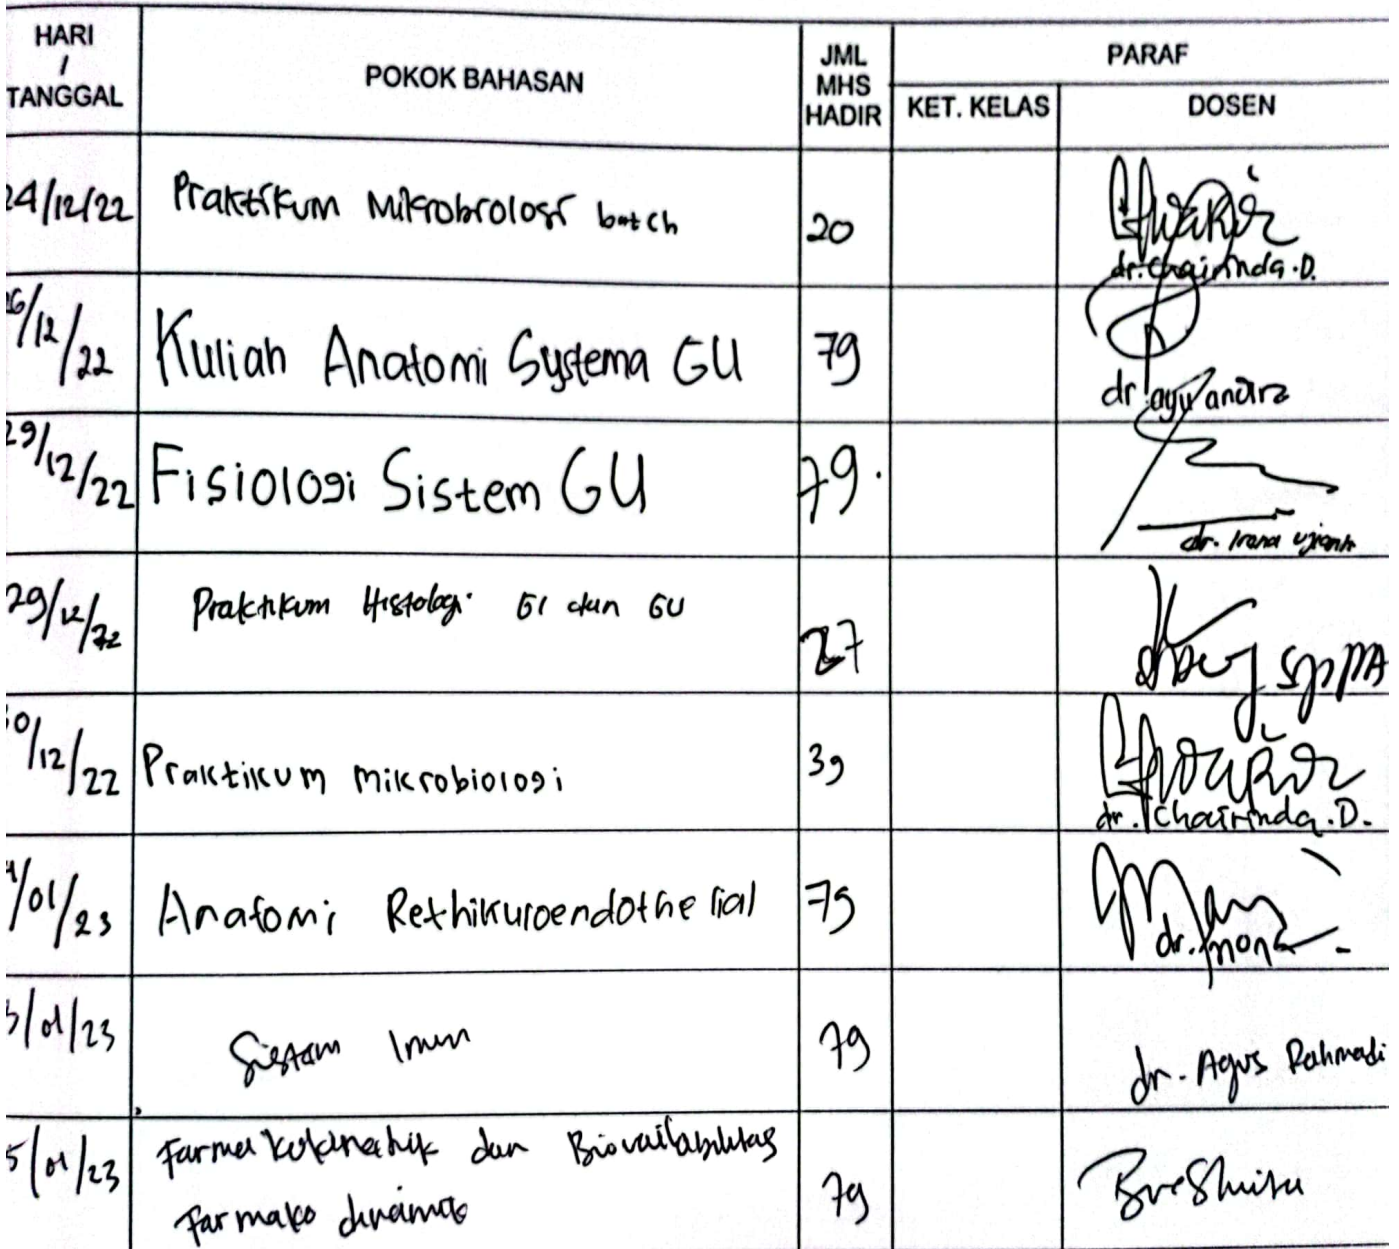 HARI
/
TANGGAL
POKOK BAHASAN
JML
MHS
HADIR
PARAF
KET. KELAS
DOSEN
24/12/22
Praktikum Mikrobiologi batch
20
dr. Chairinda .D.
6/12/22
Kuliah Anatomi Systema GU
79
dr ayu andira
29/12/22
Fisiologi Sistem GU
79.
dr. Irana
29/12/22
Praktikum Histologi GI dan GU
27
SpPA
0/12/22
Praktikum mikrobiologi
39
dr. Chairinda .D.
/01/23
Anatomi Rethikuroendothelial
79
dr. mona
/01/23
Sistem Imun
79
dr. Agus Rahmadi
5/01/23
Farmakokinetik dan Biovailabilitas
79
Farmako dinamik